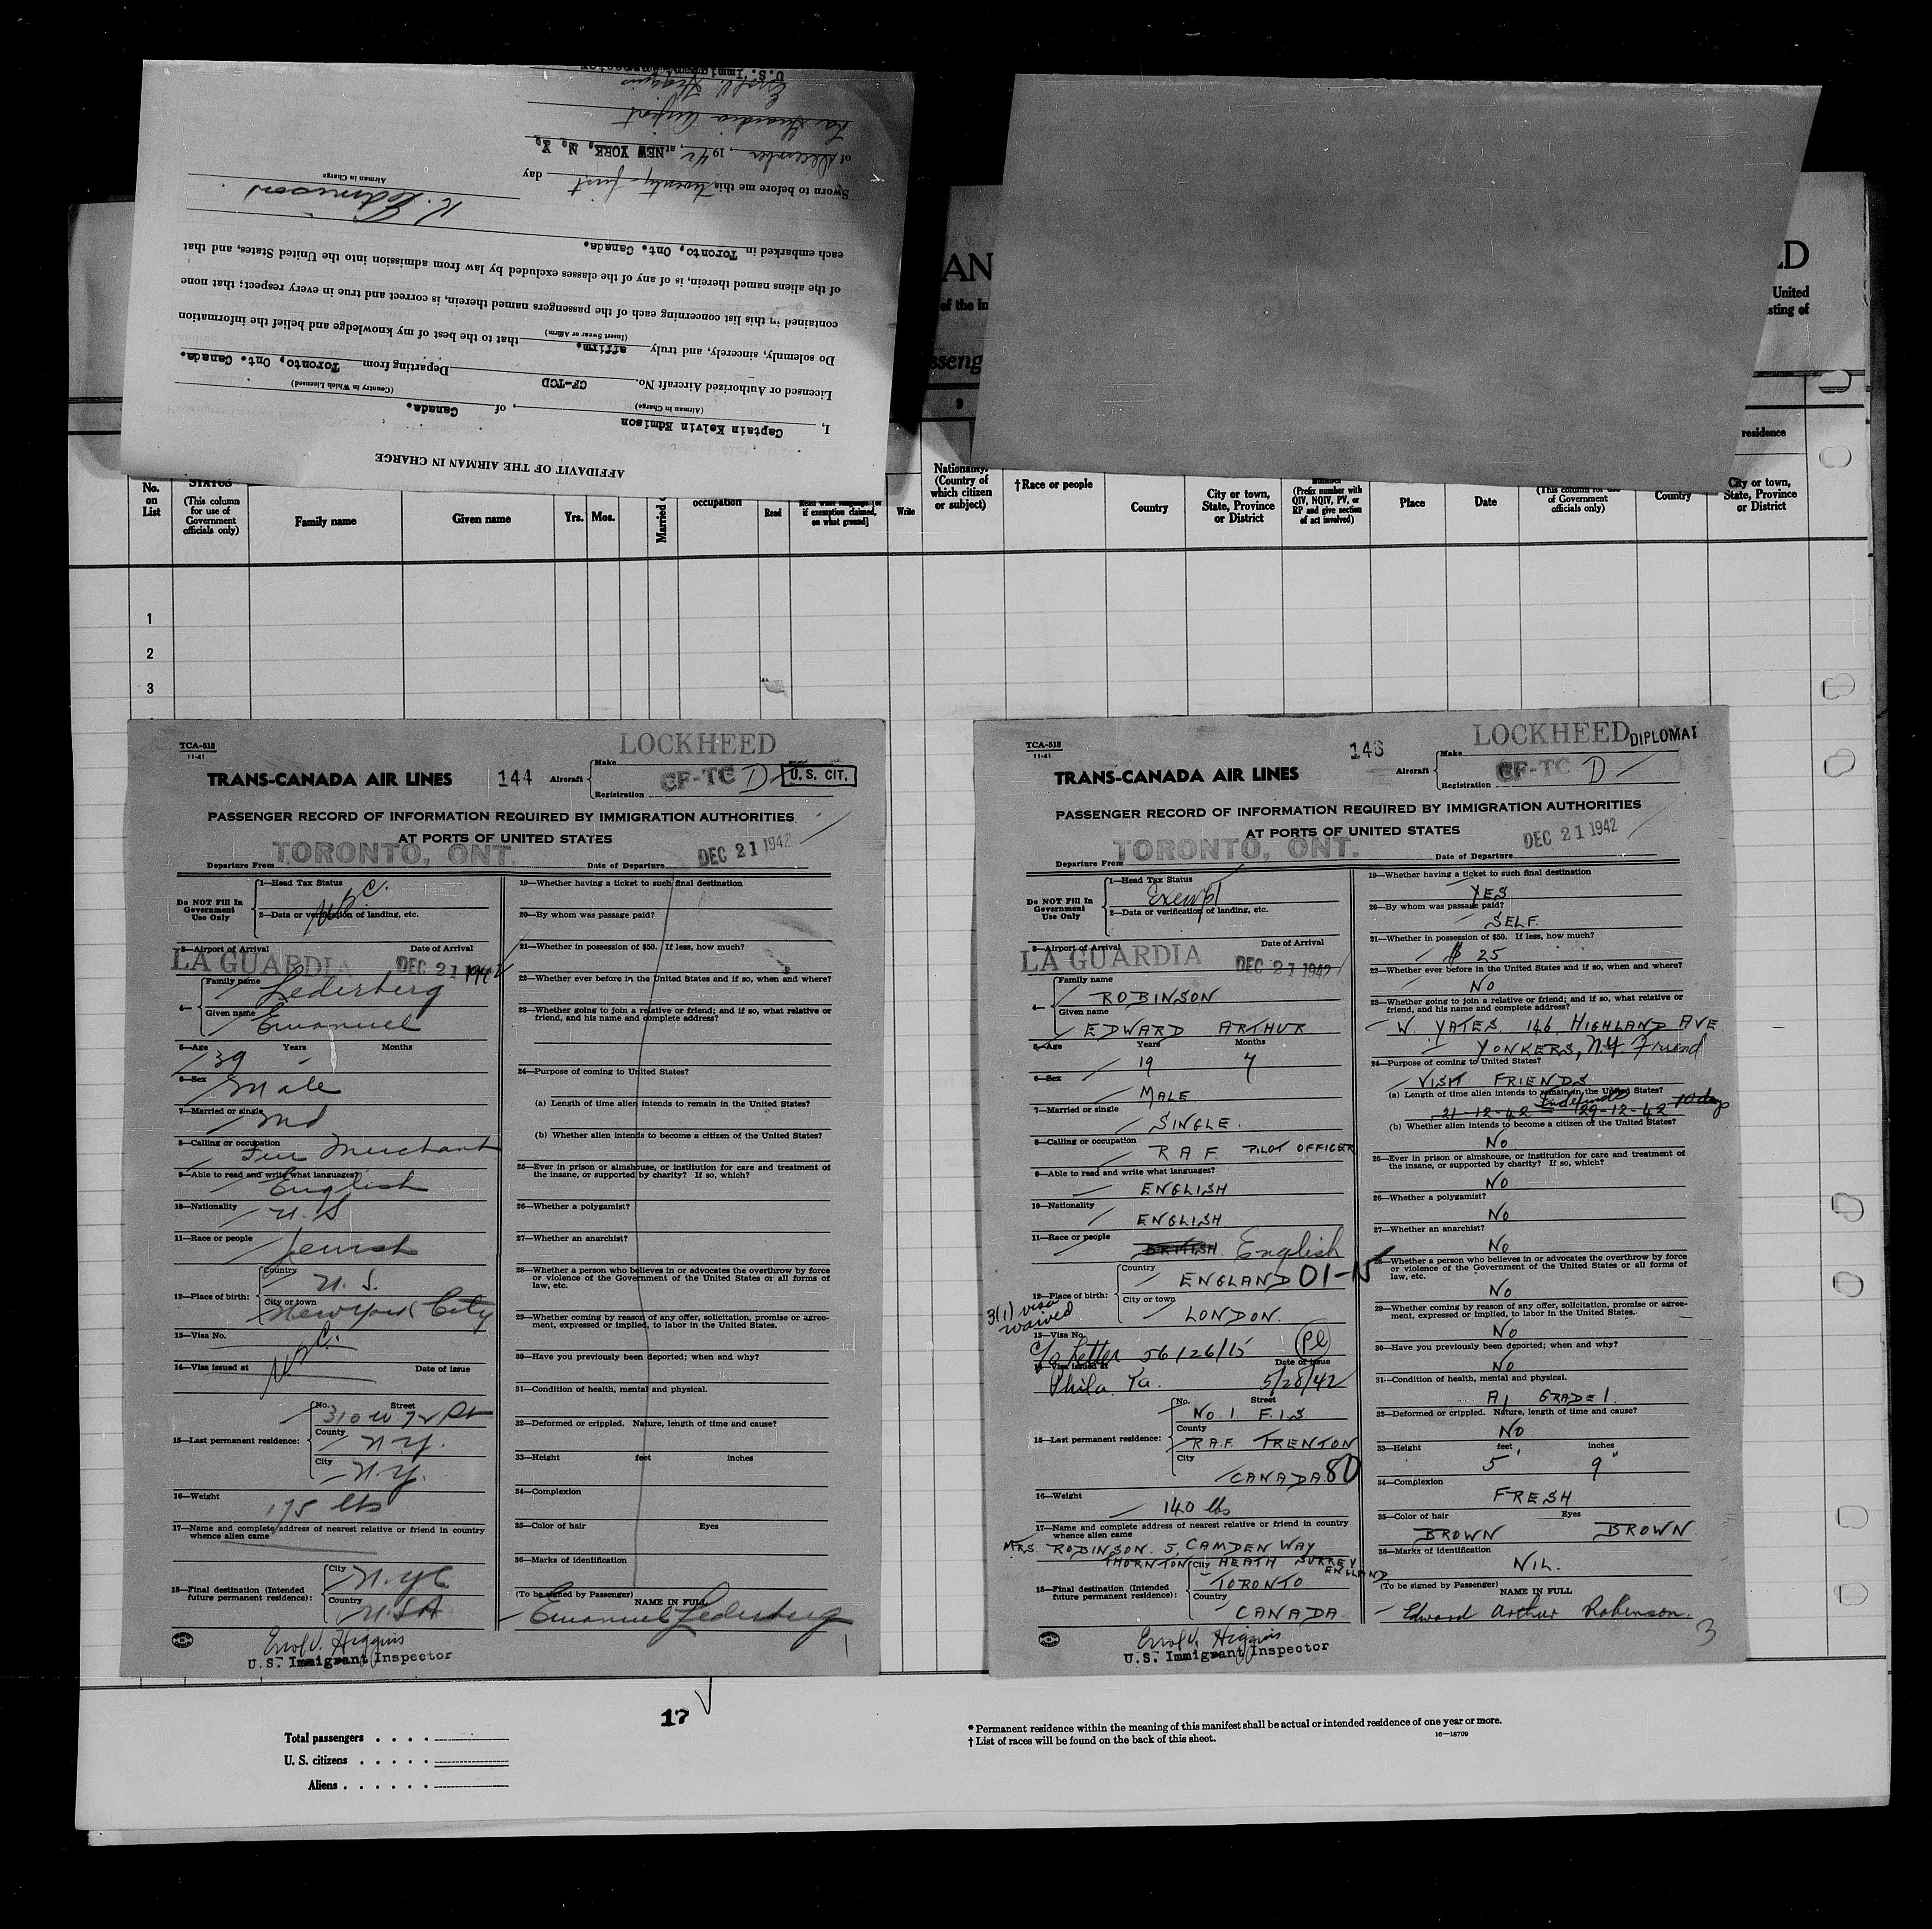 AFFIDAVIT OF THE AIRMAN IN CHARGE
I, Captain Kelvin Edmison, of Canada.
(Airman in Charge) (Country in Which Licensed)
Licensed or Authorized Aircraft No. CF-TCD Departing from Toronto, Ont. Canada.
Do solemnly, sincerely, and truly affirm. that to the best of my knowledge and belief the information
(Insert Swear or Affirm)
contained in this list concerning each of the passengers named therein, is correct and true in every respect; that none
of the aliens named therein, is of any of the classes excluded by law from admission into the United States, and that
each embarked in Toronto, Ont. Canada.
K. Edmison
Airman in Charge
Sworn to before me this twenty-first day
of December, 1942, at NEW YORK, N. Y.
La Guardia Airport
Errol V. Higgins
U.S. Immigrant Inspector
AN
LD
of the in
United
sting of
sseng
residence
No. on List
STATUS
(This column for use of Government officials only)
Family name
Given name
Yrs. Mos.
Married
occupation
Read
if exemption claimed, on what ground]
Write
Nationality. (Country of which citizen or subject)
†Race or people
Country
City or town, State, Province or District
number
(Prefix number with QIV, NQIV, PV, or RP and give section of act involved)
Place
Date
(This column for use of Government officials only)
Country
City or town, State, Province or District
1
2
3
TCA-518
11-41
LOCKHEED
TRANS-CANADA AIR LINES 144 Aircraft Make
Registration CF-TC D
U.S. CIT.
PASSENGER RECORD OF INFORMATION REQUIRED BY IMMIGRATION AUTHORITIES
AT PORTS OF UNITED STATES
Departure From TORONTO, ONT. Date of Departure DEC 21 1942
Do NOT Fill In Government Use Only
1—Head Tax Status
2—Data or verification of landing, etc.
3—Airport of Arrival LA GUARDIA Date of Arrival DEC 21 1942
4— Family name Lederberg
Given name Emanuel
5—Age 39 Years - Months
6—Sex Male
7—Married or single Md
8—Calling or occupation Fur Merchant
9—Able to read and write what languages? English
10—Nationality U.S
11—Race or people Jewish
12—Place of birth: Country U.S.
City or town New York City
13—Visa No.
14—Visa issued at Date of issue
15—Last permanent residence: No. Street 310 W 72 St
County N.Y.
City N.Y.
16—Weight 175 lbs
17—Name and complete address of nearest relative or friend in country whence alien came
18—Final destination (Intended future permanent residence): City N.Y.C
Country USA
Errol V. Higgins
U.S. Immigrant Inspector
19—Whether having a ticket to such final destination
20—By whom was passage paid?
21—Whether in possession of $50. If less, how much?
22—Whether ever before in the United States and if so, when and where?
23—Whether going to join a relative or friend; and if so, what relative or friend, and his name and complete address?
24—Purpose of coming to United States?
(a) Length of time alien intends to remain in the United States?
(b) Whether alien intends to become a citizen of the United States?
25—Ever in prison or almshouse, or institution for care and treatment of the insane, or supported by charity? If so, which?
26—Whether a polygamist?
27—Whether an anarchist?
28—Whether a person who believes in or advocates the overthrow by force or violence of the Government of the United States or all forms of law, etc.
29—Whether coming by reason of any offer, solicitation, promise or agreement, expressed or implied, to labor in the United States.
30—Have you previously been deported; when and why?
31—Condition of health, mental and physical.
32—Deformed or crippled. Nature, length of time and cause?
33—Height feet inches
34—Complexion
35—Color of hair Eyes
36—Marks of identification
(To be signed by Passenger) NAME IN FULL
Emanuel Lederberg
1
TCA-518
11-41
LOCKHEED DIPLOMAT
TRANS-CANADA AIR LINES 146 Aircraft Make
Registration CF-TC D
PASSENGER RECORD OF INFORMATION REQUIRED BY IMMIGRATION AUTHORITIES
AT PORTS OF UNITED STATES
Departure From TORONTO, ONT. Date of Departure DEC 21 1942
Do NOT Fill In Government Use Only
1—Head Tax Status Exempt
2—Data or verification of landing, etc.
3—Airport of Arrival LA GUARDIA Date of Arrival DEC 21 1942
4— Family name ROBINSON
Given name EDWARD ARTHUR
5—Age Years 19 Months 7
6—Sex MALE
7—Married or single SINGLE.
8—Calling or occupation R A F. PILOT OFFICER
9—Able to read and write what languages? ENGLISH
10—Nationality ENGLISH
11—Race or people BRITISH. English
12—Place of birth: Country ENGLAND 01-15
City or town LONDON.
3(1) visa waived
13—Visa No. C/o Letter 56126/15 (Pl)
14—Visa issued at Phila. Pa. Date of issue 5/28/42
15—Last permanent residence: No. Street No. 1 F.I.S
County R.A.F. TRENTON
City CANADA 80
16—Weight 140 lbs
17—Name and complete address of nearest relative or friend in country whence alien came
MRS ROBINSON. 5, CAMDEN WAY
THORNTON HEATH SURREY ENGLAND
18—Final destination (Intended future permanent residence): City TORONTO
Country CANADA.
Errol V. Higgins
U.S. Immigrant Inspector
19—Whether having a ticket to such final destination
YES
20—By whom was passage paid?
SELF.
21—Whether in possession of $50. If less, how much?
$ 25
22—Whether ever before in the United States and if so, when and where?
NO
23—Whether going to join a relative or friend; and if so, what relative or friend, and his name and complete address?
W. YATES. 146. HIGHLAND AVE
YONKERS, N.Y. Friend
24—Purpose of coming to United States?
VISIT FRIENDS
(a) Length of time alien intends to remain in the United States?
21-12-42 Indefinite 29-12-42 10 days
(b) Whether alien intends to become a citizen of the United States?
NO
25—Ever in prison or almshouse, or institution for care and treatment of the insane, or supported by charity? If so, which?
NO
26—Whether a polygamist?
NO
27—Whether an anarchist?
NO
28—Whether a person who believes in or advocates the overthrow by force or violence of the Government of the United States or all forms of law, etc.
NO
29—Whether coming by reason of any offer, solicitation, promise or agreement, expressed or implied, to labor in the United States.
NO
30—Have you previously been deported; when and why?
NO
31—Condition of health, mental and physical.
A1 GRADE 1.
32—Deformed or crippled. Nature, length of time and cause?
NO
33—Height feet inches
5' 9"
34—Complexion
FRESH
35—Color of hair Eyes
BROWN BROWN
36—Marks of identification
NIL.
(To be signed by Passenger) NAME IN FULL
Edward Arthur Robinson.
3
17
Total passengers
U. S. citizens
Aliens
* Permanent residence within the meaning of this manifest shall be actual or intended residence of one year or more.
† List of races will be found on the back of this sheet.
16—18709